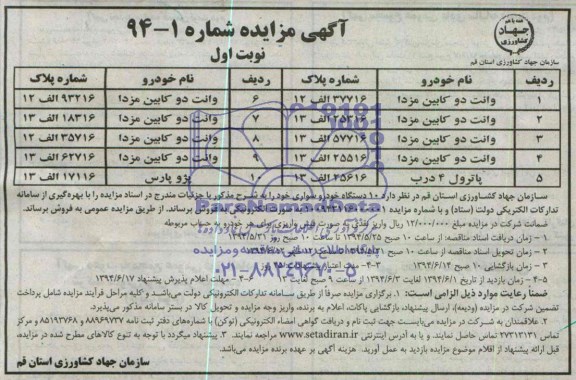 همه با هم
جهاد
کشاورزی
سازمان جهاد کشاورزی استان قم
آگهی مزایده شماره ۱-۹۴
نوبت اول
ردیف نام خودرو شماره پلاک ردیف نام خودرو شماره پلاک
۱ وانت دو کابین مزدا ۳۷۷۱۶ الف ۱۲ ۶ وانت دو کابین مزدا ۹۳۲۱۶ الف ۱۲
۲ وانت دو کابین مزدا ۲۵۳۱۶ الف ۱۳ ۷ وانت دو کابین مزدا ۱۸۳۱۶ الف ۱۳
۳ وانت دو کابین مزدا ۵۷۷۱۶ الف ۱۲ ۸ وانت دو کابین مزدا ۳۵۷۱۶ الف ۱۲
۴ وانت دو کابین مزدا ۲۵۵۱۶ الف ۱۳ ۹ وانت دو کابین مزدا ۶۲۷۱۶ الف ۱۳
۵ پاترول ۴ درب ۴۵۶۱۶ الف ۱۳ ۱۰ پژو پارس ۱۷۱۱۶ الف ۱۳
سازمان جهاد کشاورزی استان قم در نظر دارد ۱۰ دستگاه خودرو سواری خود را به شرح مذکور با جزئیات مندرج در اسناد مزایده را با بهره‌گیری از سامانه
تدارکات الکتریکی دولت (ستاد) و با شماره مزایده به صورت الکترونیکی به فروش برساند. از طریق مزایده عمومی به فروش برساند.
ضمانت شرکت در مزایده مبلغ ۱۲/۰۰۰/۰۰۰ ریال واریز نقدی به صورت فیش واریزی برای هر خودرو به حساب مربوطه
۱- زمان دریافت اسناد مناقصه: از ساعت ۱۰ صبح ۱۳۹۴/۵/۲۵ تا ساعت ۱۰ صبح روز ۱۳۹۴/۵/۳۱
۲- زمان تحویل اسناد مناقصه: از ساعت ۱۰ صبح
۳- زمان بازگشایی ۱۰ صبح ۱۳۹۴/۶/۱۴
۴-۵- زمان بازدید از تاریخ ۱۳۹۴/۶/۱ لغایت ۱۳۹۴/۶/۳ از ساعت ۹ صبح لغایت ۱۳ مهلت اعلام پذیرش پیشنهاد ۱۳۹۴/۶/۱۷
ضمنا رعایت موارد ذیل الزامی است: ۱. برگزاری مزایده صرفاً از طریق سامانه تدارکات الکترونیکی دولت می‌باشد و کلیه مراحل فرآیند مزایده شامل پرداخت
تضمین شرکت در مزایده (ودیعه)، ارسال پیشنهاد، بازگشایی پاکات، اعلام به برنده، واریز وجه مزایده و تحویل کالا در بستر سامانه مذکور می‌پذیرد.
۲. علاقمندان به شرکت در مزایده می‌بایست جهت ثبت نام و دریافت گواهی امضاء الکترونیکی (توکن) با شماره‌های دفتر ثبت نامه ۸۸۹۶۹۷۳۷ و ۸۵۱۹۳۷۶۸ و مرکز
تماس ۲۷۳۱۳۱۳۱ تماس حاصل نمایند. و یا به آدرس اینترنتی www.setadiran.ir مراجعه نمایند. ۳. پیشنهاد میگردد با توجه به تنوع کالاهای مطرح شده در مزایده،
قبل ارائه پیشنهاد از اقلام موضوع مزایده بازدید به عمل آورید. هزینه آگهی بر عهده برنده مزایده می‌باشد.
سازمان جهاد کشاورزی استان قم
ParsNamadData
۰۲۱-۸۸۳۴۹۶۷۰-۵